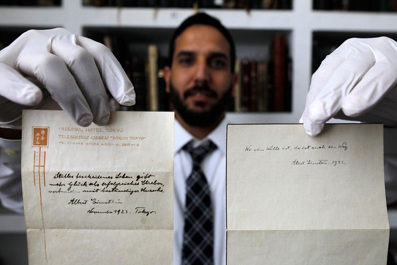 IMPERIAL HOTEL TOKYO
Stilles bescheidenes Leben gibt
mehr Glück als erfolgreiches Streben,
verbunden mit beständiger Unruhe.
Albert Einstein
November 1922. Tokyo.
Wo ein Wille ist, da ist auch ein Weg
Albert Einstein, 1922.